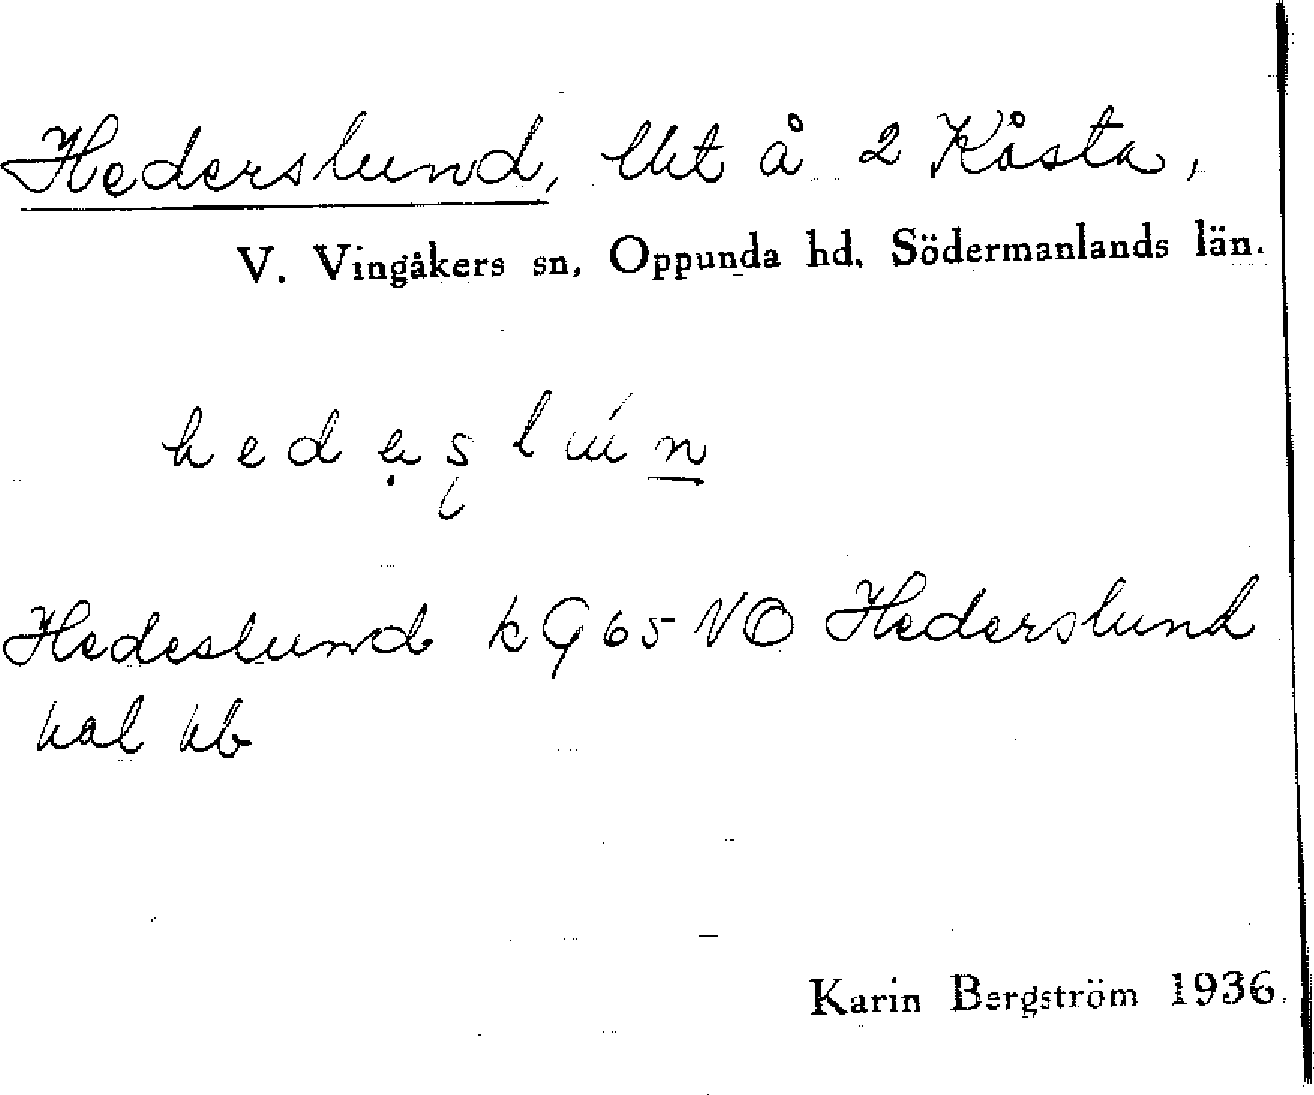 Hederslund, lht å 2 Kåsta,
V. Vingåkers sn, Oppunda hd, Södermanlands län.
Hedeslund kG 65 NO Hederslund
kal kb
Karin Bergström 1936.